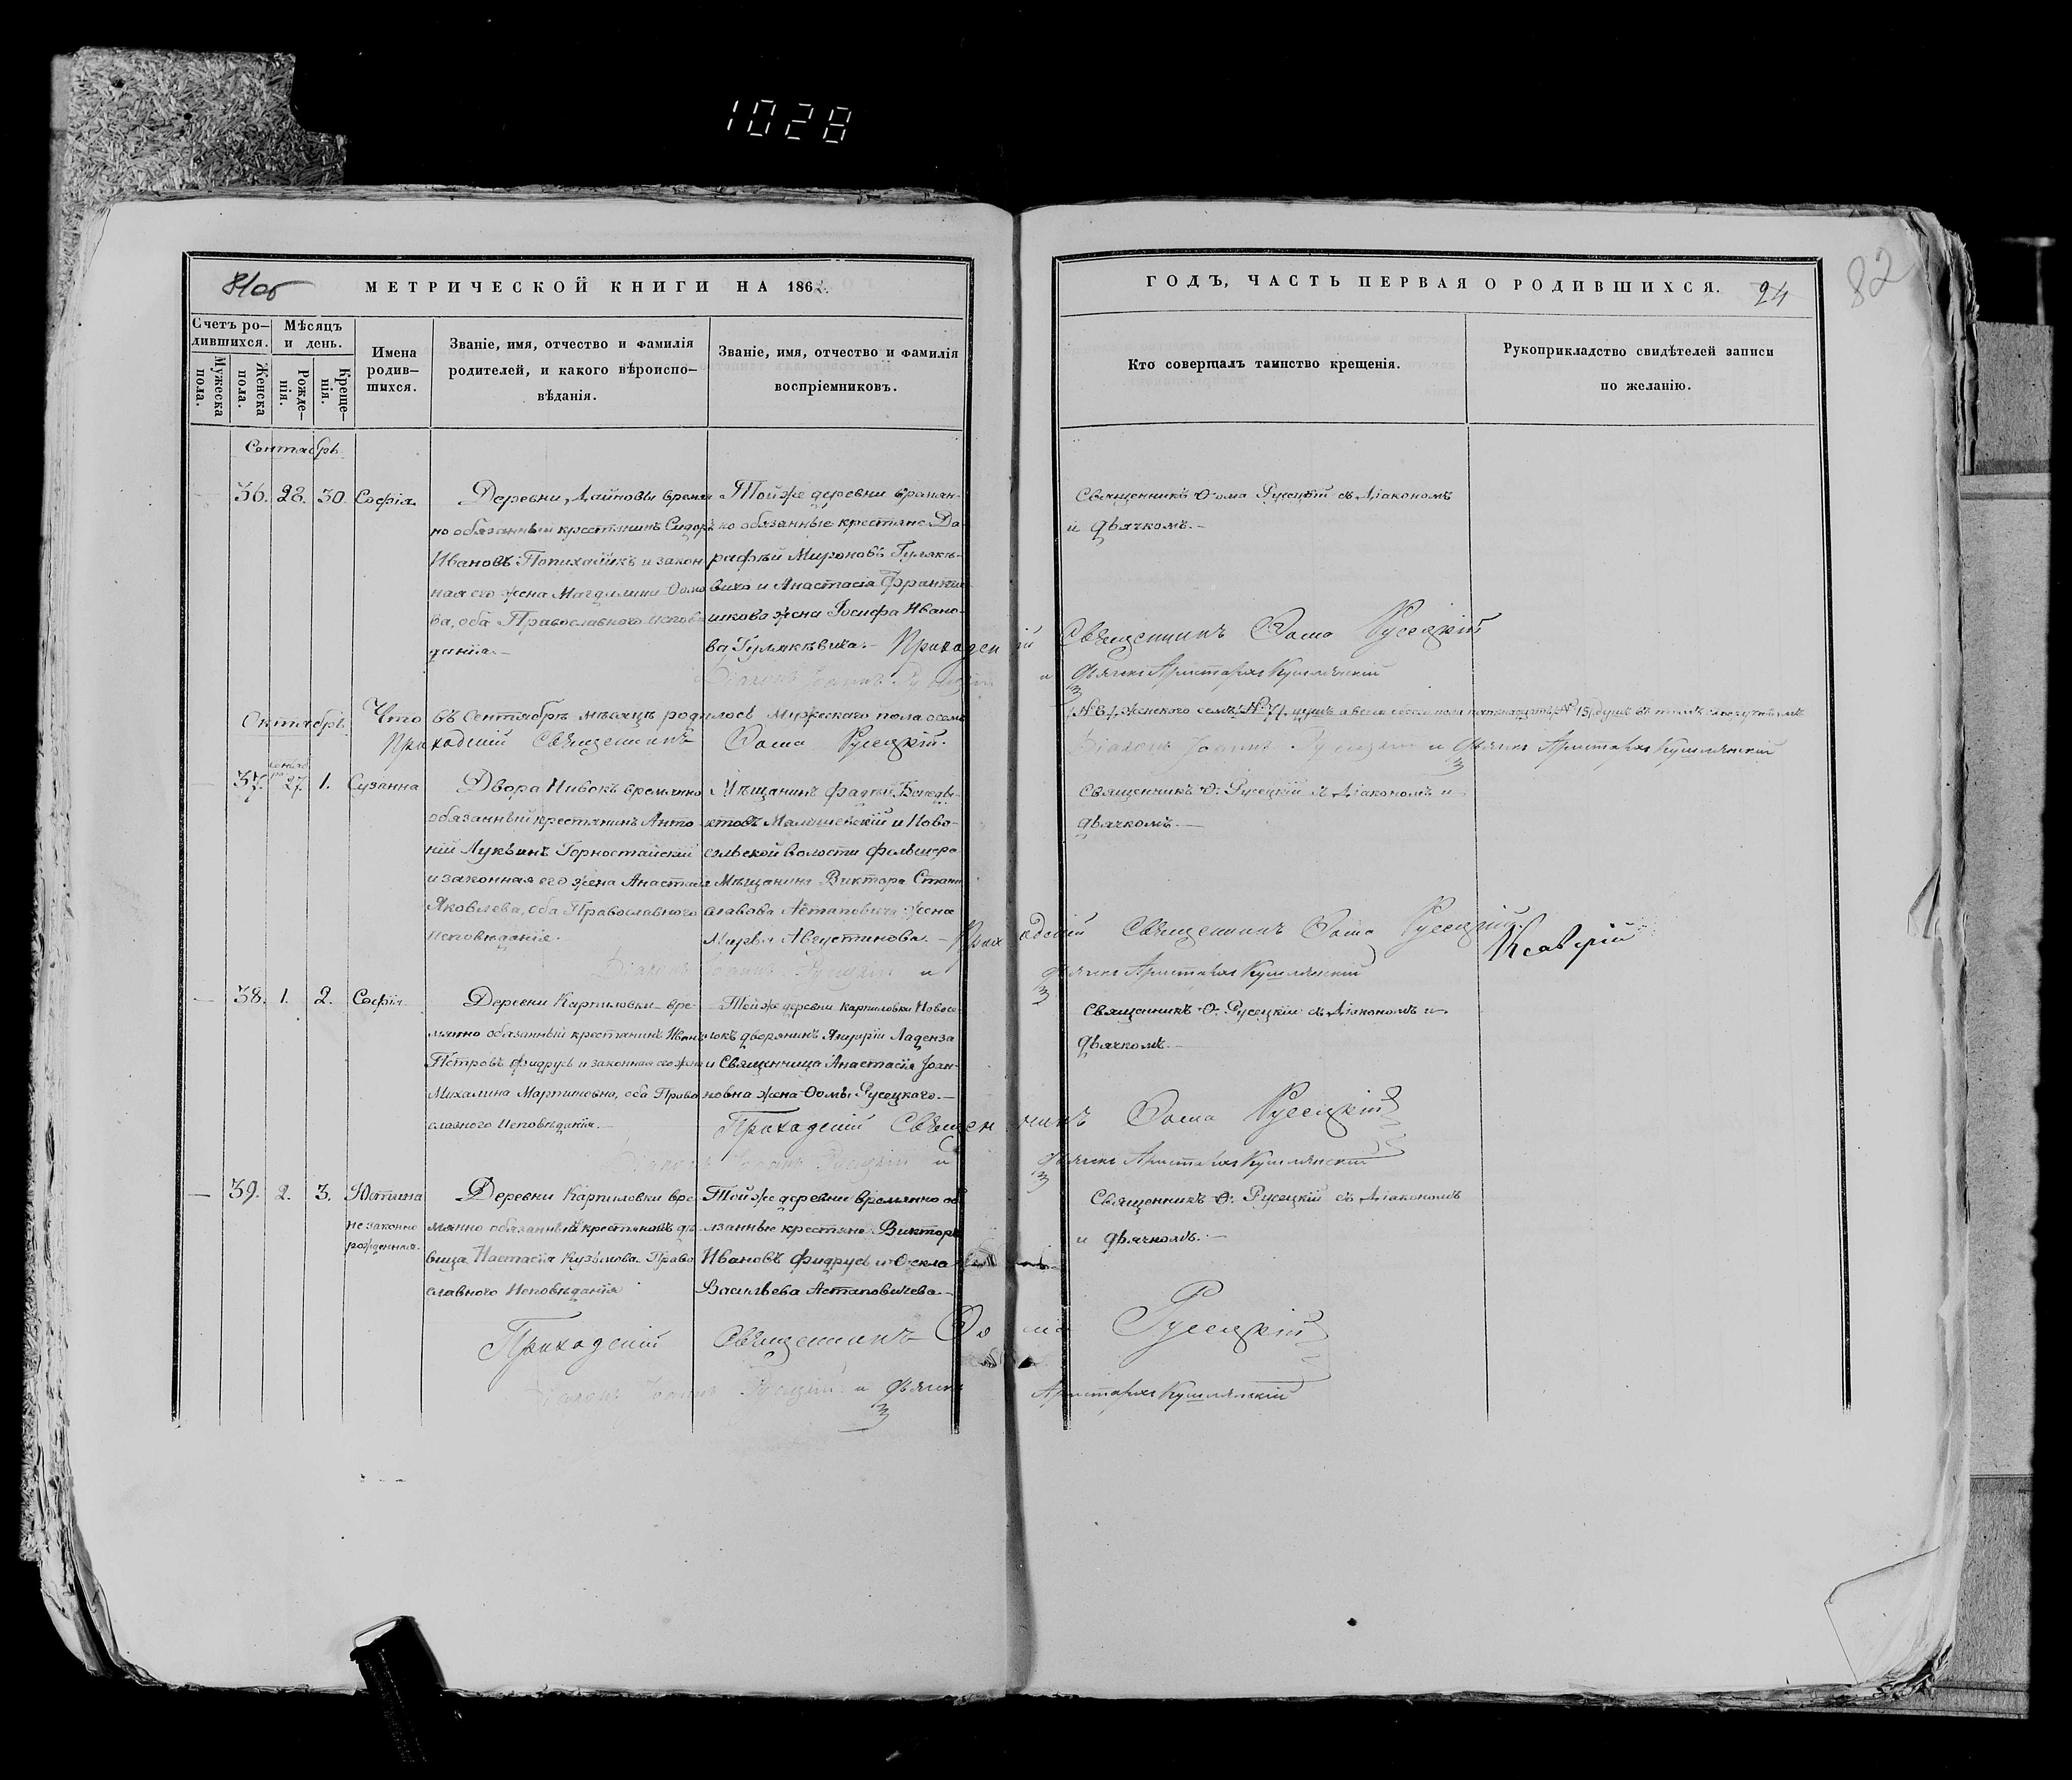 1028
МЕТРИЧЕСКОЙ КНИГИ НА 186
ГОДЪ, ЧАСТЬ ПЕРВАЯ О РОДИВШИХСЯ.
24
82
Счетъ ро-
дившихся.
Мужеска пола.
Женска пола.
Мѣсяцъ
и день.
Рожде-
нія.
Креще-
нія.
Имена
родив-
шихся.
Званіе, имя, отчество и фамилія
родителей, и какого вѣроиспо-
вѣданія.
Званіе, имя, отчество и фамилія
воспріемниковъ.
Кто совершалъ таинство крещенія.
Рукоприкладство свидѣтелей записи
по желанію.
Сентябрь.
36. 28. 30. Софія
Деревни Лайновъ времян-
но обязанный крестьянинъ Сидоръ
Ивановъ и закон-
ная его жена Магдалина Ѳомо-
ва, оба Православнаго исповѣ-
данія.-
Той же деревни времян-
но обязанные крестьяне До-
рофѣй Мироновъ Гуляке-
вичъ и Анастасія Францы-
шкова жена Іосифа Ивано-
ва Гулякевича.-
Священникъ Ѳома Русецкій съ Діакономъ
и дьячкомъ.-
Приходскій Священникъ Ѳома Русецкій
Діаконъ Іоаннъ Русецкій и дьячекъ Аристархъ
Что въ Сентябрѣ мѣсяцѣ родилось мужескаго пола осемь
/№ 8/. женского семь /№ 7/. душъ а всего обоего пола пятнадцать /№ 15/ душъ въ томъ
Октябрь.
Приходскій Священникъ Ѳома Русецкій.
Діаконъ Іоаннъ Русецкій и дьячекъ Аристархъ
37. 27. 1. Сузанна
Двора Нивокъ времянно
обязанный крестьянинъ Анто-
ній Лукьинъ Горностайскій
и законная его жена Анастасія
Яковлева, оба Православнаго
исповѣданія.
Мѣщанинъ Фадѣй Бенеди-
ктовъ и Ново-
сельской волости фельшера
Мѣщанина Виктора Стани-
славова Астаповича жена
Августинова.-
Священникъ Ѳ. Русецкій съ Діакономъ и
дьячкомъ.-
Приходскій Священникъ Ѳома Русецкій.
Діаконъ Іоаннъ Русецкій и
дьячекъ Аристархъ
38. 1. 2. Софія
Деревни Карпиловки вре-
мянно обязанный крестьянинъ Иванъ
Петровъ Фидрусь и законная его жена
Михалина Мартиновна, оба Право-
славного Исповѣданія.-
Той же деревни Карпиловки
дворянинъ
и Священница Анастасія Іоан-
новна жена Ѳомы Русецкаго.-
Священникъ Ѳ. Русецкій съ Діакономъ и
дьячкомъ.-
Приходскій Священникъ Ѳома Русецкій
Діаконъ Іоаннъ Русецкій и
дьячекъ Аристархъ
39. 2. 3. Юстина
незаконно
рожденная.
Деревни Карпиловки вре-
мянно обязанный крестьянинъ дѣ-
вица Настасія Кузьмова Право-
славного Исповѣданія
Той же деревни времянно об-
язанные крестьяне Викторъ
Ивановъ Фидрусь и Ѳекла
Васильева Астаповичева.-
Священникъ Ѳ. Русецкій съ Діакономъ
и дьячкомъ.-
Приходскій Священникъ Ѳома Русецкій
Діаконъ Іоаннъ Русецкій и дьячекъ Аристархъ